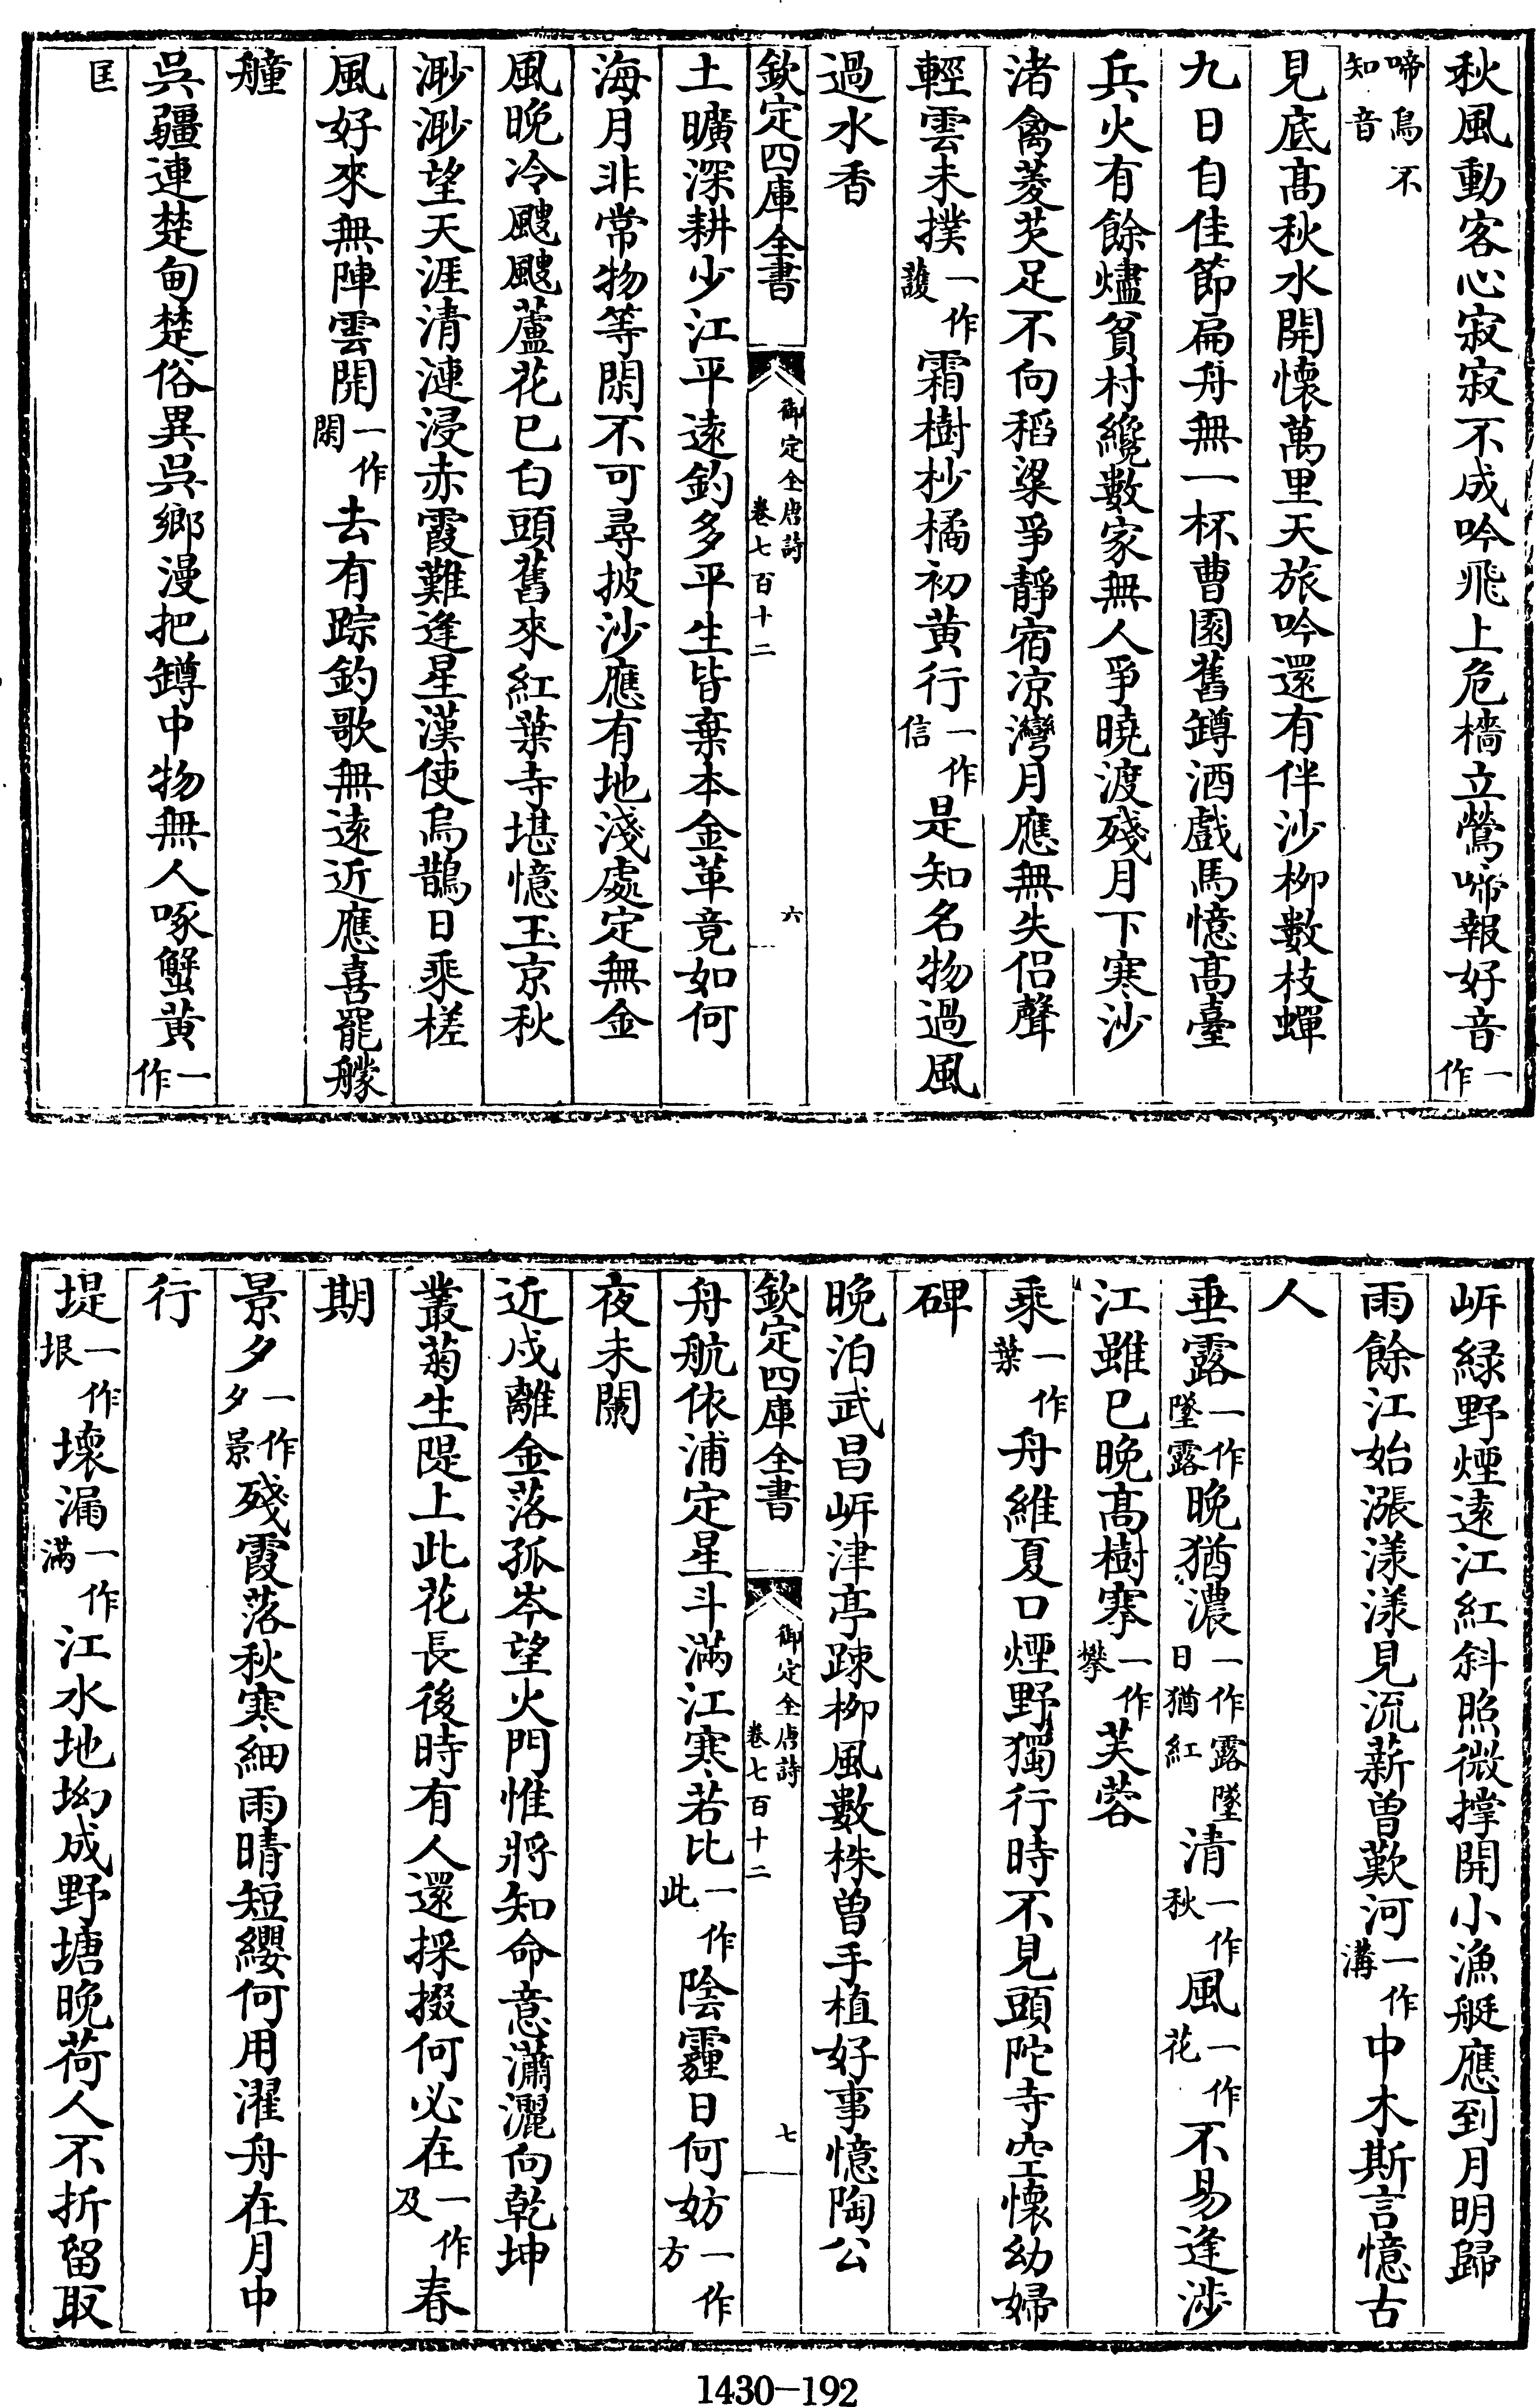 秋風動客心寂寂不成吟飛上危檣立鶯啼報好音一作
啼鳥不知音
見底高秋水開懷萬里天旅吟還有伴沙柳數枝蟬
九日自佳節扁舟無一杯曹園舊罇酒戲馬憶高臺
兵火有餘燼貧村纔數家無人爭曉渡殘月下寒沙
渚禽菱芡足不向稻粱爭靜宿凉灣月應無失侣聲
輕雲未撲一作護霜樹杪橘初黄行一作信是知名物過風
過水香
欽定四庫全書
御定全唐詩
卷七百十二
六
土曠深耕少江平遠釣多平生皆棄本金革竟如何
海月非常物等閑不可尋披沙應有地淺處定無金
風晚冷颼颼蘆花已白頭舊來紅葉寺堪憶玉京秋
渺渺望天涯清漣浸赤霞難逢星漢使烏鵲日乘槎
風好來無陣雲開一作閑去有踪釣歌無遠近應喜罷艨
艟
呉疆連楚甸楚俗異呉鄉漫把罇中物無人啄蟹黄一作
匡
岍緑野煙遠江紅斜照微撑開小漁艇應到月明歸
雨餘江始漲漾漾見流薪曽歎河一作溝中木斯言憶古
人
垂露一作墜露晚猶濃一作露墜日猶紅清一作秋風一作花不易逢渉
江雖已晚高樹搴一作攀芙蓉
乘一作葉舟維夏口煙野獨行時不見頭陀寺空懷幼婦
碑
晚泊武昌岍津亭踈柳風數株曽手植好事憶陶公
欽定四庫全書
御定全唐詩
卷七百十二
七
舟航依浦定星斗滿江寒若比一作此陰霾日何妨一作方
夜未闌
近戍離金落孤岑望火門惟將知命意瀟灑向乾坤
叢菊生隄上此花長後時有人還採掇何必在一作及春
期
景夕一作夕景殘霞落秋寒細雨晴短纓何用濯舟在月中
行
堤一作垠壞漏一作滿江水地坳成野塘晚荷人不折留取
1430－192